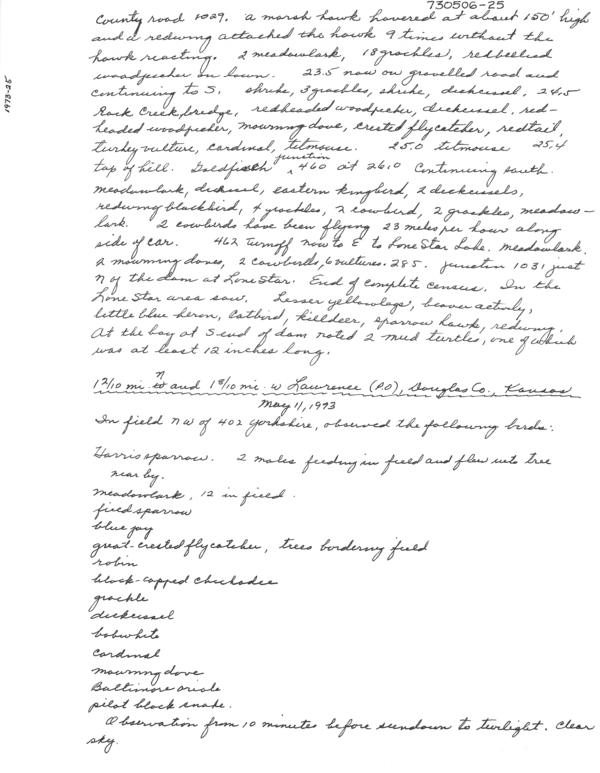 730506-25
County road 1029. A marsh hawk hovered at about 150' high
and a redwing attacked the hawk 9 times without the
hawk reacting. 2 meadowlark, 18 grackles, redbellied
woodpecker on lawn. 23.5 now on gravelled road and
continuing to S. shrike, 3 grackles, shrike, dickcissel, 24.5
Rock Creek bridge, redheaded woodpecker, dickcissel, red-
headed woodpecker, mourning dove, crested flycatcher, redtail,
turkey vulture, cardinal, titmouse. 25.0 titmouse 25.4
top of hill. Goldfinch junction 460 at 26.0 Continuing south.
meadowlark, dickcissel, eastern kingbird, 2 dickcissels,
redwing blackbird, 4 grackles, 2 cowbird, 2 grackles, meadow-
lark. 2 cowbirds have been flying 23 miles per hour along
side of car. 462 turnoff now to E to Lone Star Lake. Meadowlark.
2 mourning doves, 2 cowbirds, 6 vultures. 28.5. junction 1031 just
N of the dam at Lone Star. End of complete census. In the
Lone Star area saw. Lesser yellowlegs, beaver activity,
little blue heron, catbird, killdeer, sparrow hawk, redwing.
At the bay at S end of dam noted 2 mud turtles, one of which
was at least 12 inches long.
1 2/10 mi. N and 1 8/10 mi. W Lawrence (P.O), Douglas Co., Kansas
May 11, 1973
In field NW of 402 Yorkshire, observed the following birds:
Harris sparrow. 2 males feeding in field and flew into tree
near by.
meadowlark, 12 in field.
field sparrow
blue jay
great-crested flycatcher, trees bordering field
robin
black-capped chickadee
grackle
dickcissel
bobwhite
cardinal
mourning dove
Baltimore oriole
pilot black snake.
Observation from 10 minutes before sundown to twilight. Clear
sky.
1973-25